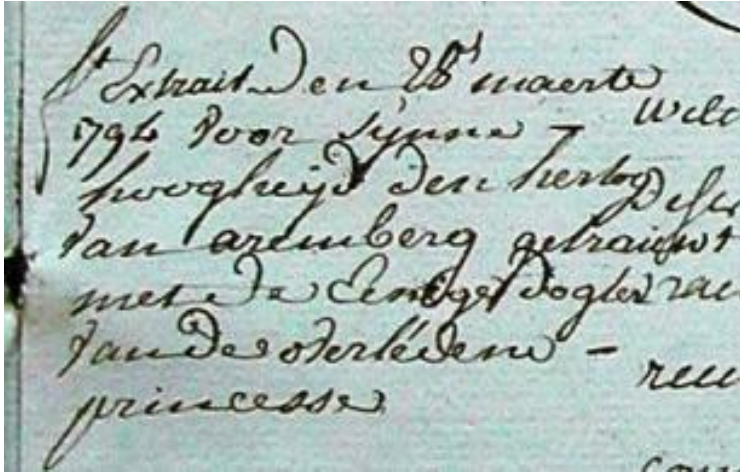 St Extrait den 28st maerte
1794 voor sijnne -
hoogheijd den hertog
van aremberg getrauwt
met de Eenige dogter
van de overledene -
princesse